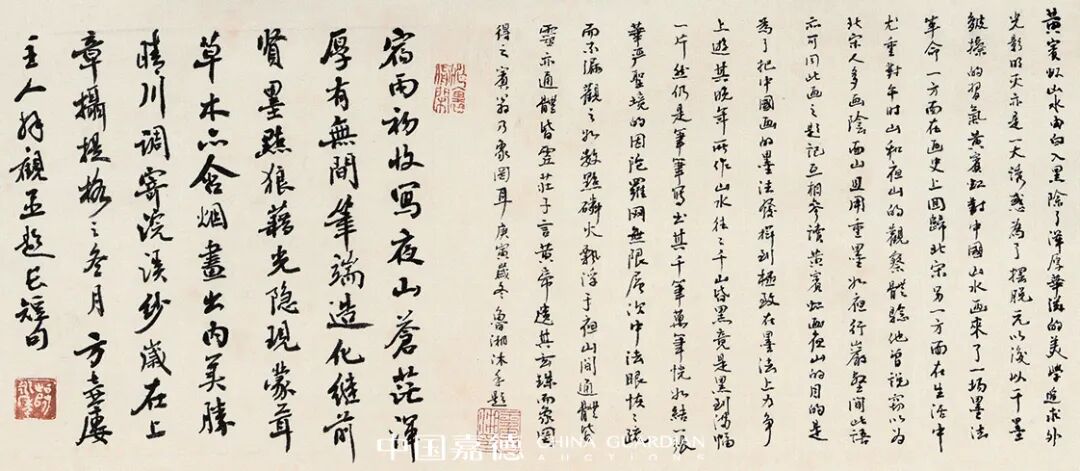 黄賓虹山水由白入黑除了渾厚華滋的美学追求外
光影明灭亦是一大誘惑為了摆脱元以後以干墨
皴擦的習氣黄賓虹對中國山水画來了一場墨法
革命一方面在画史上回歸北宋另一方面在生活中
尤重對午时山和夜山的觀察體驗他曾说竊以為
北宋人多画陰面山且用重墨如夜行巖壑間此語
亦可同此画之题記互相参读黄賓虹画夜山的目的是
為了把中國画的墨法發挥到極致在墨法上力争
上遊其晚年所作山水往々千山皆黑竟是黑到滿幅
一片然仍是筆筆寫出其千筆萬筆恍如結一張
華严聖境的因陀羅网無限層次中法眼恢々疏
而不漏觀之如数點磷火飘浮于夜山間通體皆
靈亦通體皆虚莊子言黄帝遗其玄珠而象罔
得之賓翁乃象罔耳 庚寅歲冬 魯湘沐手题
宿雨初收寫夜山蒼茫渾
厚有無間筆端造化继前
賢墨點狼藉光隐現蒙茸
草木亦含烟畫出内美勝
晴川调寄浣溪纱歲在上
章攝提格之冬月方壶楼
主人拜觀並题長短句
中国嘉德 CHINA GUARDIAN
AUCTIONS